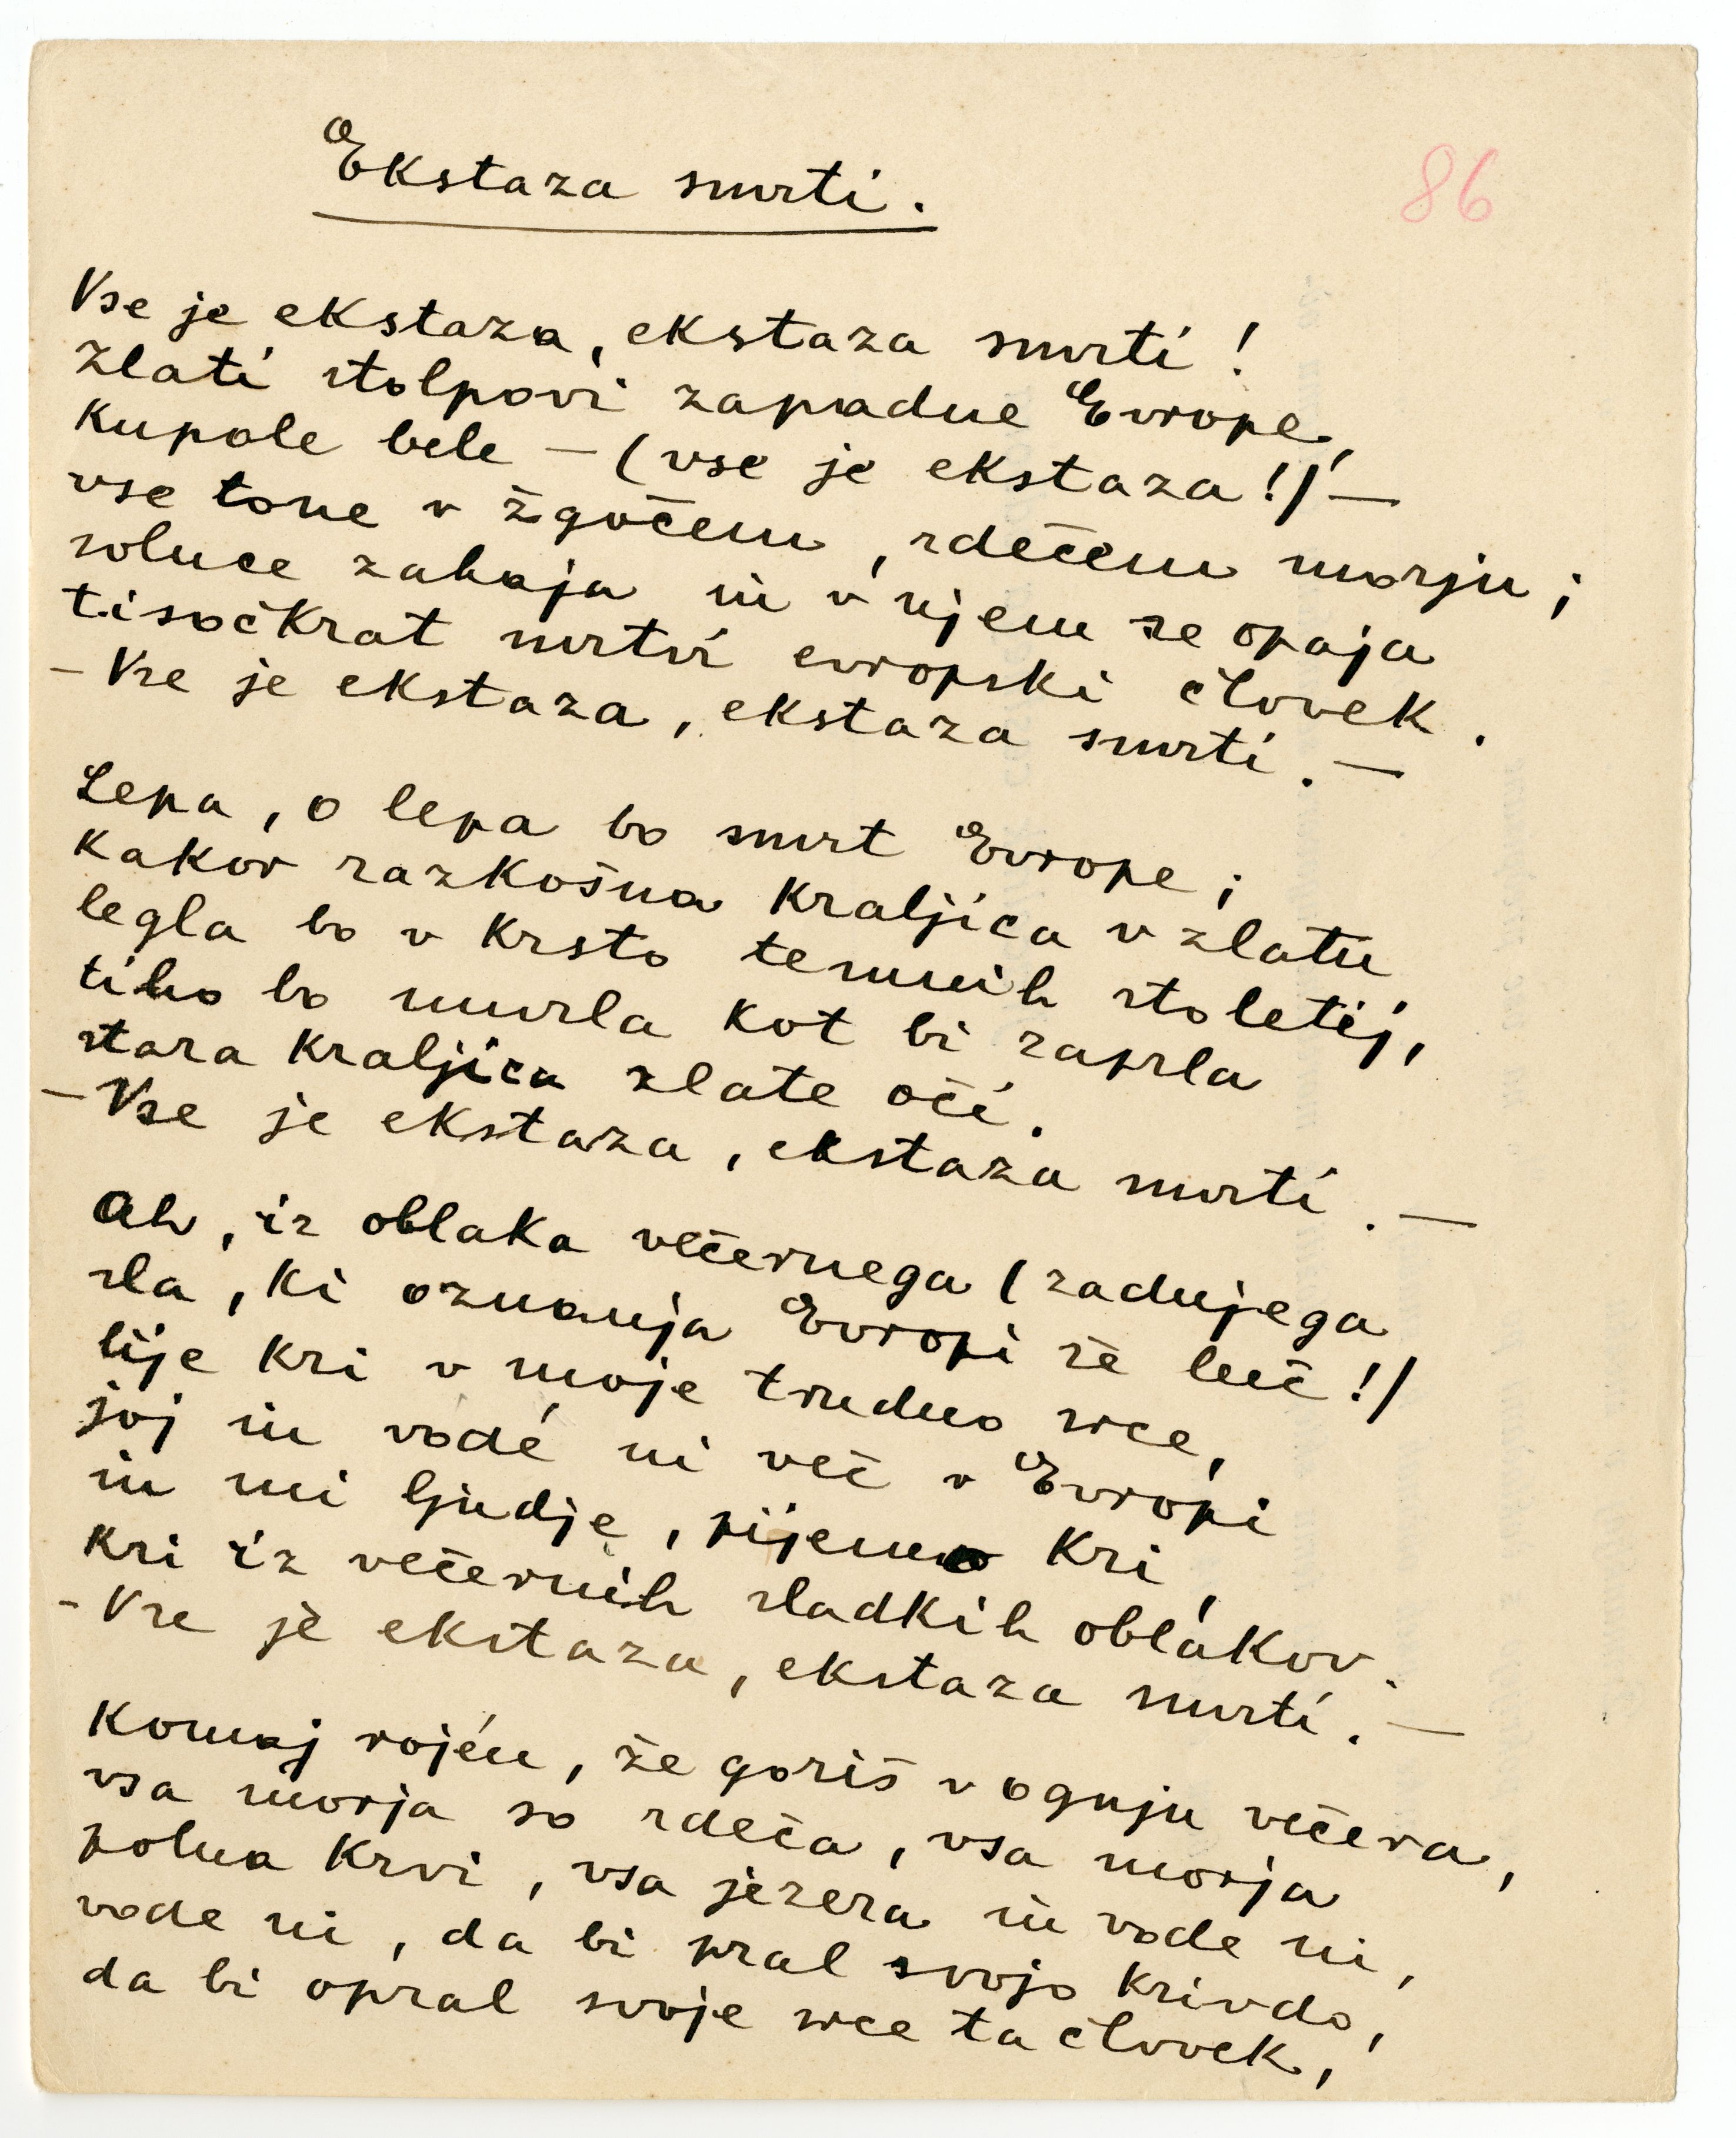 Ekstaza smrti.
86
Vse je ekstaza, ekstaza smrti!
Zlati stolpovi zapadne Evrope,
kupole bele — (vse je ekstaza!) —
vse tone v žgočem, rdečem morju;
solnce zahaja in v njem se opaja
tisočkrat mrtvi evropski človek.
– Vse je ekstaza, ekstaza smrti. —
Lepa, o lepa bo smrt Evrope;
kakor razkošna kraljica v zlatu
legla bo v krsto temnih stoletij,
tiho bo umrla kot bi zaprla
stara kraljica zlate oči.
– Vse je ekstaza, ekstaza smrti. —
Ah, iz oblaka večernega (zadnjega
sla, ki oznanja Evropi še luč!)
lije kri v moje trudno srce,
joj in vode ni več v Evropi
in mi ljudje, pijemo kri,
kri iz večernih sladkih oblakov.
– Vse je ekstaza, ekstaza smrti. —
Komaj rojen, že goriš v ognju večera,
vsa morja so rdeča, vsa morja
polna krvi, vsa jezera in vode ni,
vode ni, da bi pral svojo krivdo,
da bi opral svoje srce ta človek,